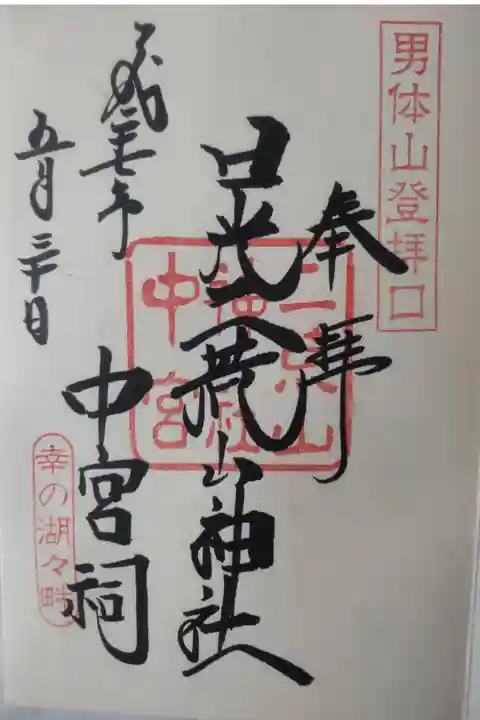 男体山登拝口
奉拝
日光二荒山神社
中宮祠
五月三十日
二荒山
神社
中宮
幸の湖々畔